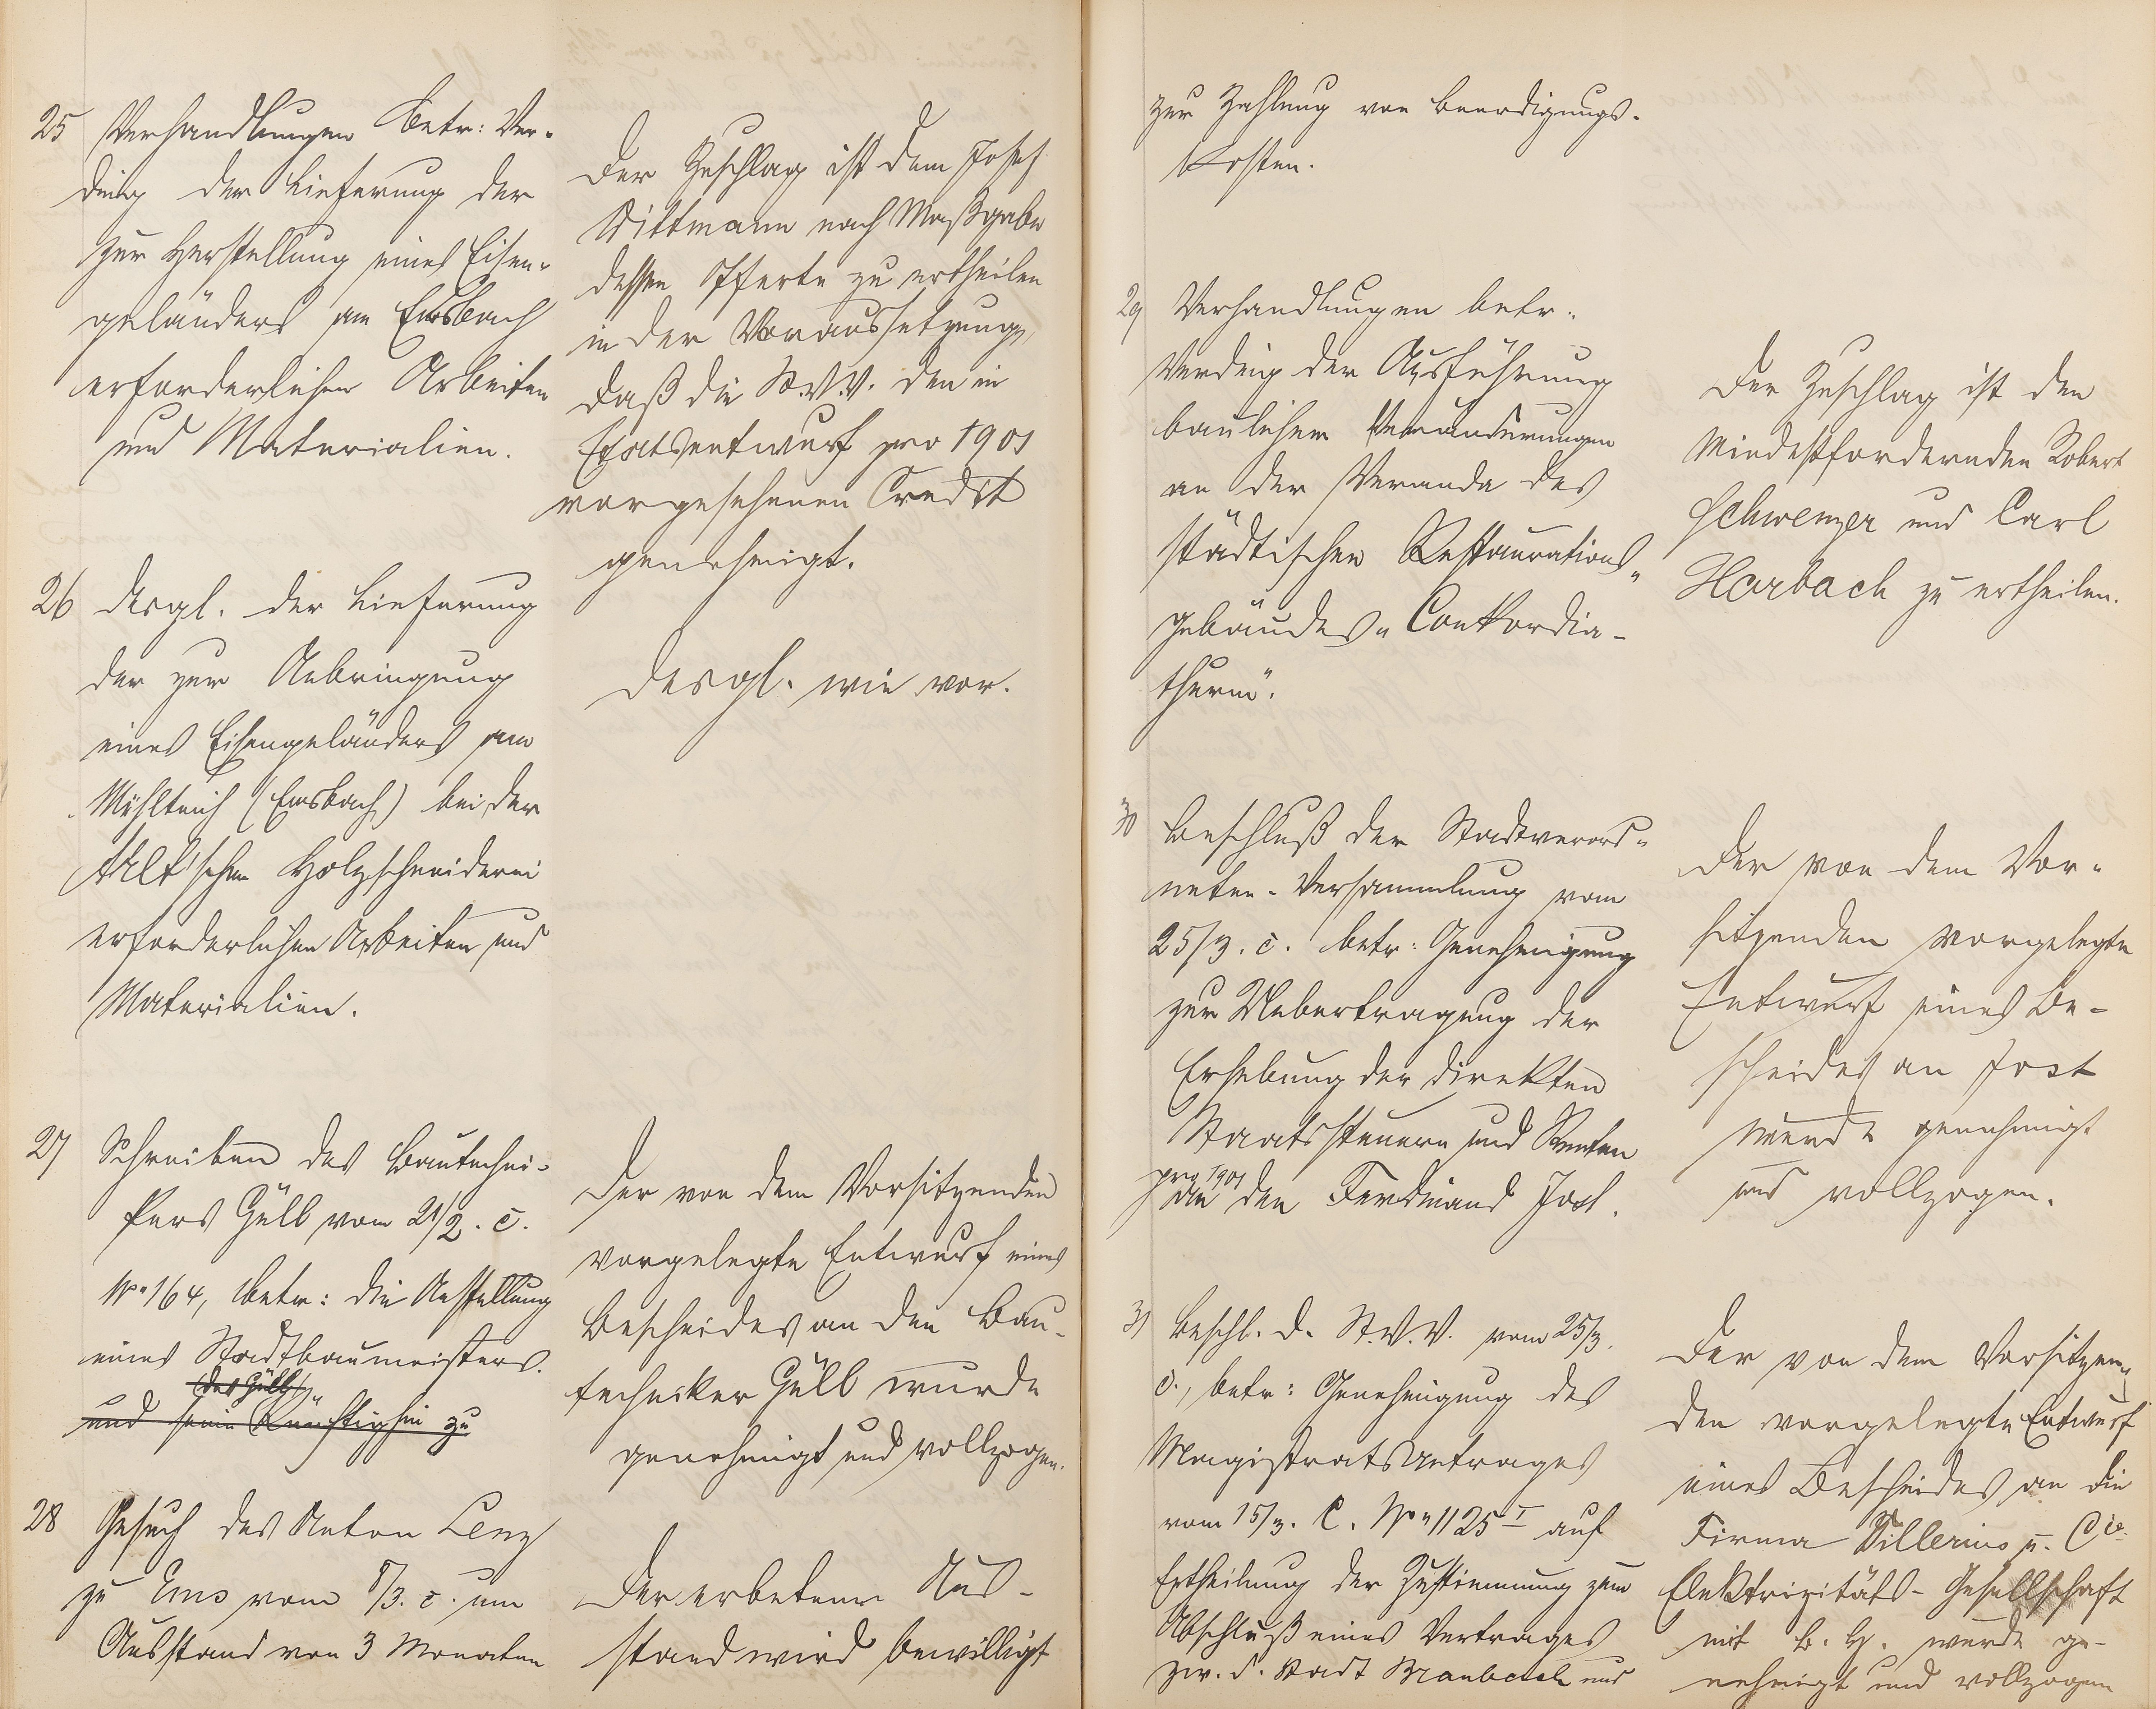 25 Verhandlungen betr: Ver-
ding der Lieferung der
zur Herstellung eines Eisen-
geländers am Emsbach
erforderlichen Arbeiten
und Materialien.
Der Zuschlag ist dem Josef
Dittmann nach Maßgabe
dessen Offerte zu ertheilen
in der Voraussetzung,
daß die St.V.V. den in
Etatsentwurf pro 1901
vorgesehenen Credit
genehmigt.
26 desgl. der Lieferung
der zur Anbringung
eines Eisengeländers am
Mühlteich (Emsbach) bei der
Alt'schen Holzschneiderei
erforderlichen Arbeiten und
Materialien.
desgl. wie vor.
27 Schreiben des Bautechni-
kers Güll vom 21/2. c.
No 164, betr: die Anstellung
eines Stadtbaumeisters.
des Güll
und seine Künftighin zu
Der von dem Vorsitzenden
vorgelegte Entwurf eines
Bescheides an den Bau-
techniker Güll wurde
genehmigt und vollzogen.
28 Gesuch des Anton Lenz
zu Ems vom 8/3. c. um
Ausstand von 3 Monaten
Der erbetene Aus-
stand wird bewilligt
zur Zahlung von Beerdigungs-
kosten.
29 Verhandlungen betr.
Verding der Ausführung
baulicher Veränderungen
an der Veranda des
städtischen Restaurations-
gebäudes "Conkordia-
thurm".
Der Zuschlag ist den
Mindestfordernden Robert
Schwenzer und Carl
Harbach zu ertheilen.
30 Beschluß der Stadtverord-
neten-Versammlung vom
25/3. c. betr: Genehmigung
zur Uebertragung der
Erhebung der direkten
Staatssteuern und Renten
pro 1901
an den Ferdinand Jost.
Der von dem Vor-
sitzenden vorgelegte
Entwurf eines Be-
scheides an Jost
wurde genehmigt
und vollzogen.
31 Beschl. d. St.V.V. vom 25/3.
c., betr: Genehmigung des
Magistratsantrages
vom 15/3. C. No 1125 I auf
Ertheilung der Zustimmung zum
Abschluß eines Vertrages
zw. d. Stadt und
Der von dem Vorsitzen-
den vorgelegte Entwurf
eines Bescheides an die
Firma u. Cie.
Elektrizitäts-Gesellschaft
mit b. H. wurde ge-
nehmigt und vollzogen